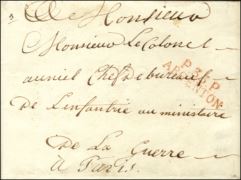 A Monsieur
Monsieur Le Colonel
Chef de bureau
De L'enfantrie au ministaire
De La Guerre
A Paris.
P.P.